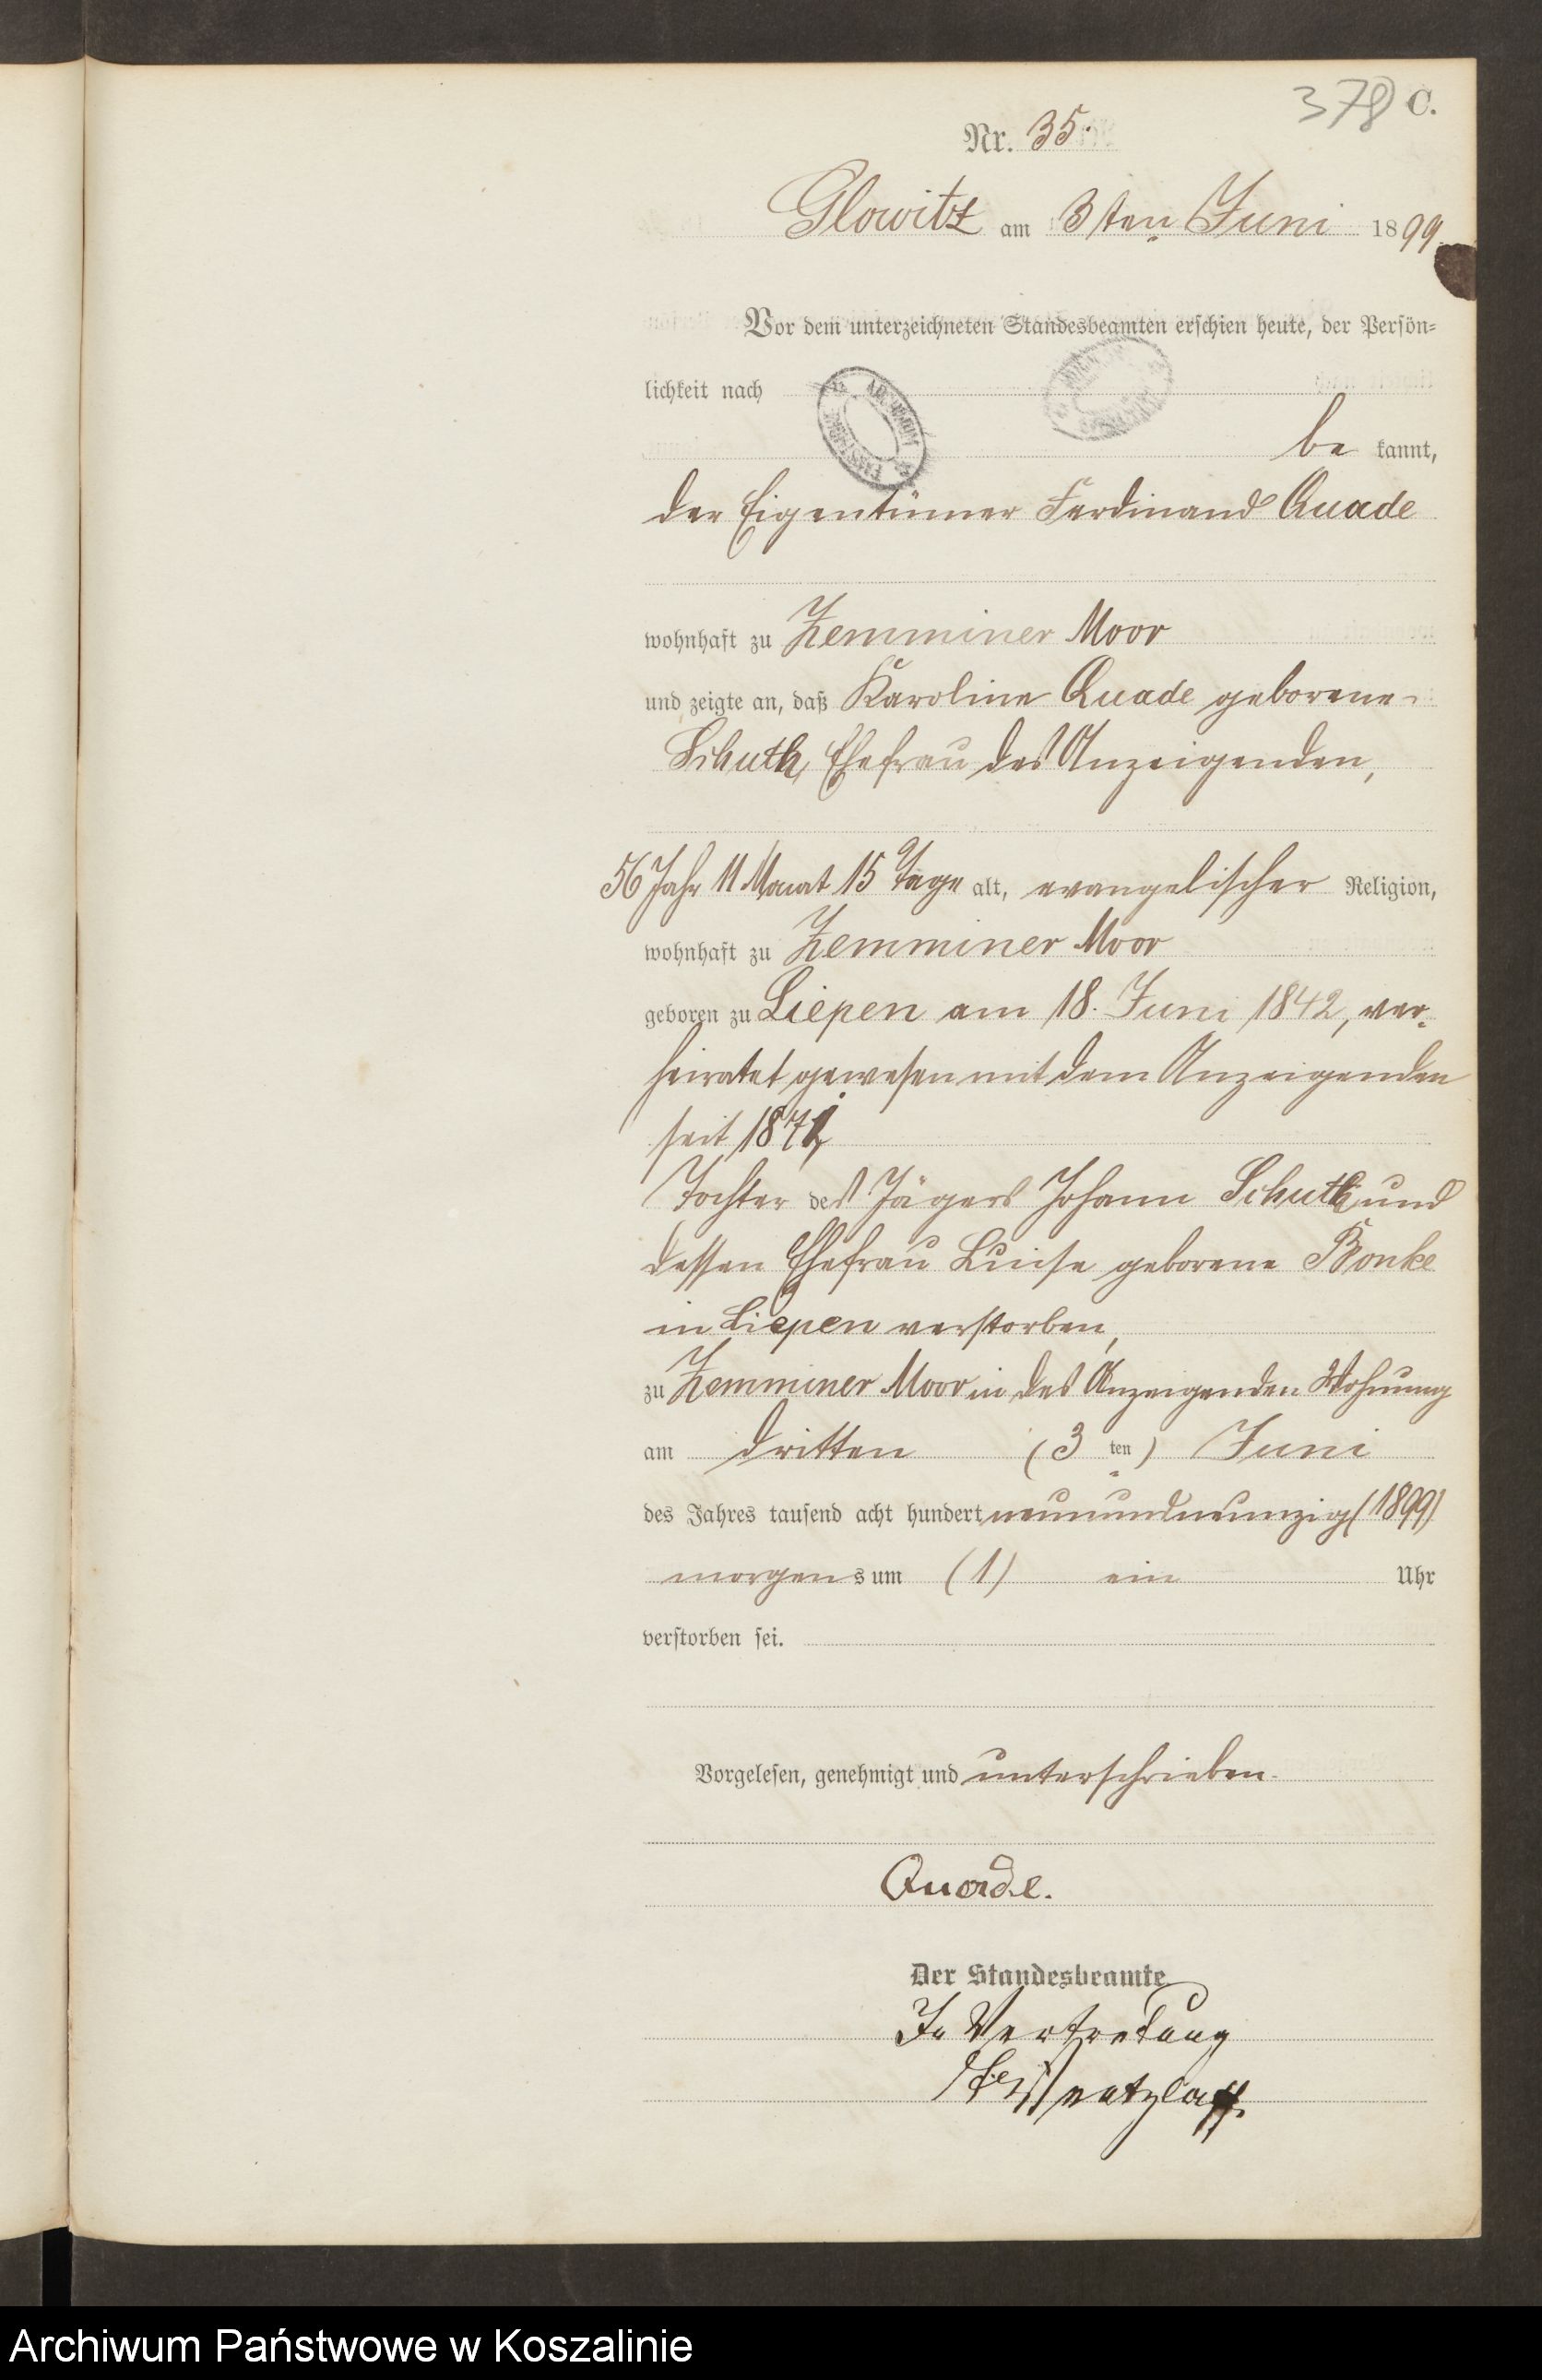 378 C.
Nr. 35.
Glowitz am 3ten Juni 1899.
Vor dem unterzeichneten Standesbeamten erschien heute, der Persön-
lichkeit nach
be kannt,
der Eigentümer Ferdinand Quade
wohnhaft zu Zemminer Moor
und zeigte an, daß Karoline Quade geborene
Schuth, Ehefrau des Anzeigenden,
56 Jahr 11 Monat 15 Tage alt, evangelischer Religion,
wohnhaft zu Zemminer Moor
geboren zu Liepen am 18. Juni 1842, ver-
heiratet gewesen mit dem Anzeigenden
seit 1871,
Tochter des Jägers Johann Schuth und
dessen Ehefrau Luise geborene Ronke
in Liepen verstorben,
zu Zemminer Moor in des Anzeigenden Wohnung
am dritten (3 ten) Juni
des Jahres tausend acht hundert neunundneunzig (1899)
morgens um (1) ein Uhr
verstorben sei.
Vorgelesen, genehmigt und unterschrieben.
Quade.
Der Standesbeamte
In Vertretung
Archiwum Państwowe w Koszalinie